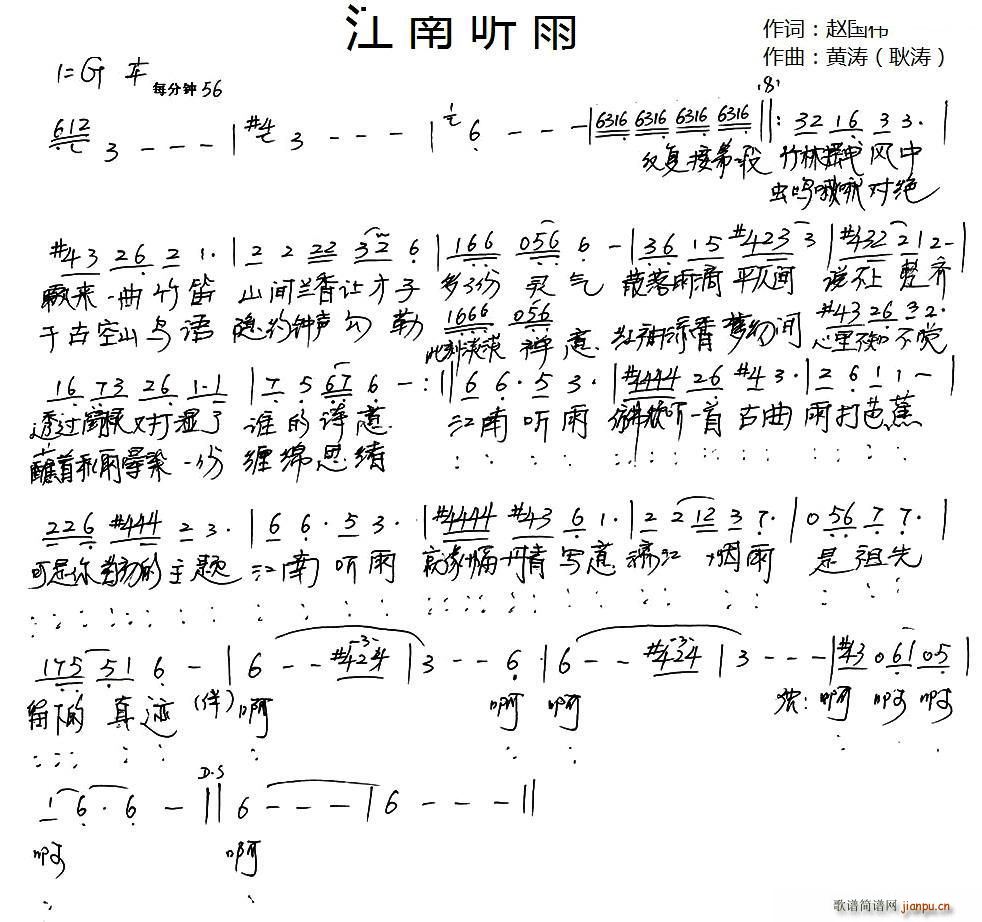 江南听雨
作词：赵国伟
作曲：黄涛（耿涛）
1=G
每分钟56
612 3 - - - | #4 3 - - - | 1 6 - - - | 6316 6316 6316 6316 ||: 32 16 3 3· |
竹林 风中
虫鸣 对绝
#43 26 2 1· | 2 2 22 32 6 | 166 056 6 - | 36 15 #423 3 | #432 2 1 2 - |
飘来一曲竹笛 山间兰香让才子 多了份 灵气 散落雨滴 平仄间 说不上 整齐
千古空山鸟语 隐约钟声勾勒 1666 056 #43 26 3 2·
此刻淡淡 禅意 红袖添香梦幻间 心里不知不觉
16 73 26 1·1 | 7 5 67 6 - :|| 6 6·5 3· | #444 26 #4 3· | 2 6 1 1 - |
透过 又打湿了 谁的诗意 江南听雨 听一首古曲 雨打芭蕉
蘸着 一份 缠绵思绪
226 #444 2 3· | 6 6·5 3· | #4444 #43 6 1· | 2 2 12 3 7· | 0 56 7 7· |
可是你 的主题 江南听雨 幅丹青写意 烟雨 是祖先
175 51 6 - | 6 - - #424 | 3 - - 6 | 6 - - #424 | 3 - - - | #43 061 05 |
留下的 真迹 (伴) 啊 啊 啊 啊 啊 啊
1 6·6 - || D.S 6 - - - | 6 - - - ||
啊 啊
歌谱简谱网 jianpu.cn